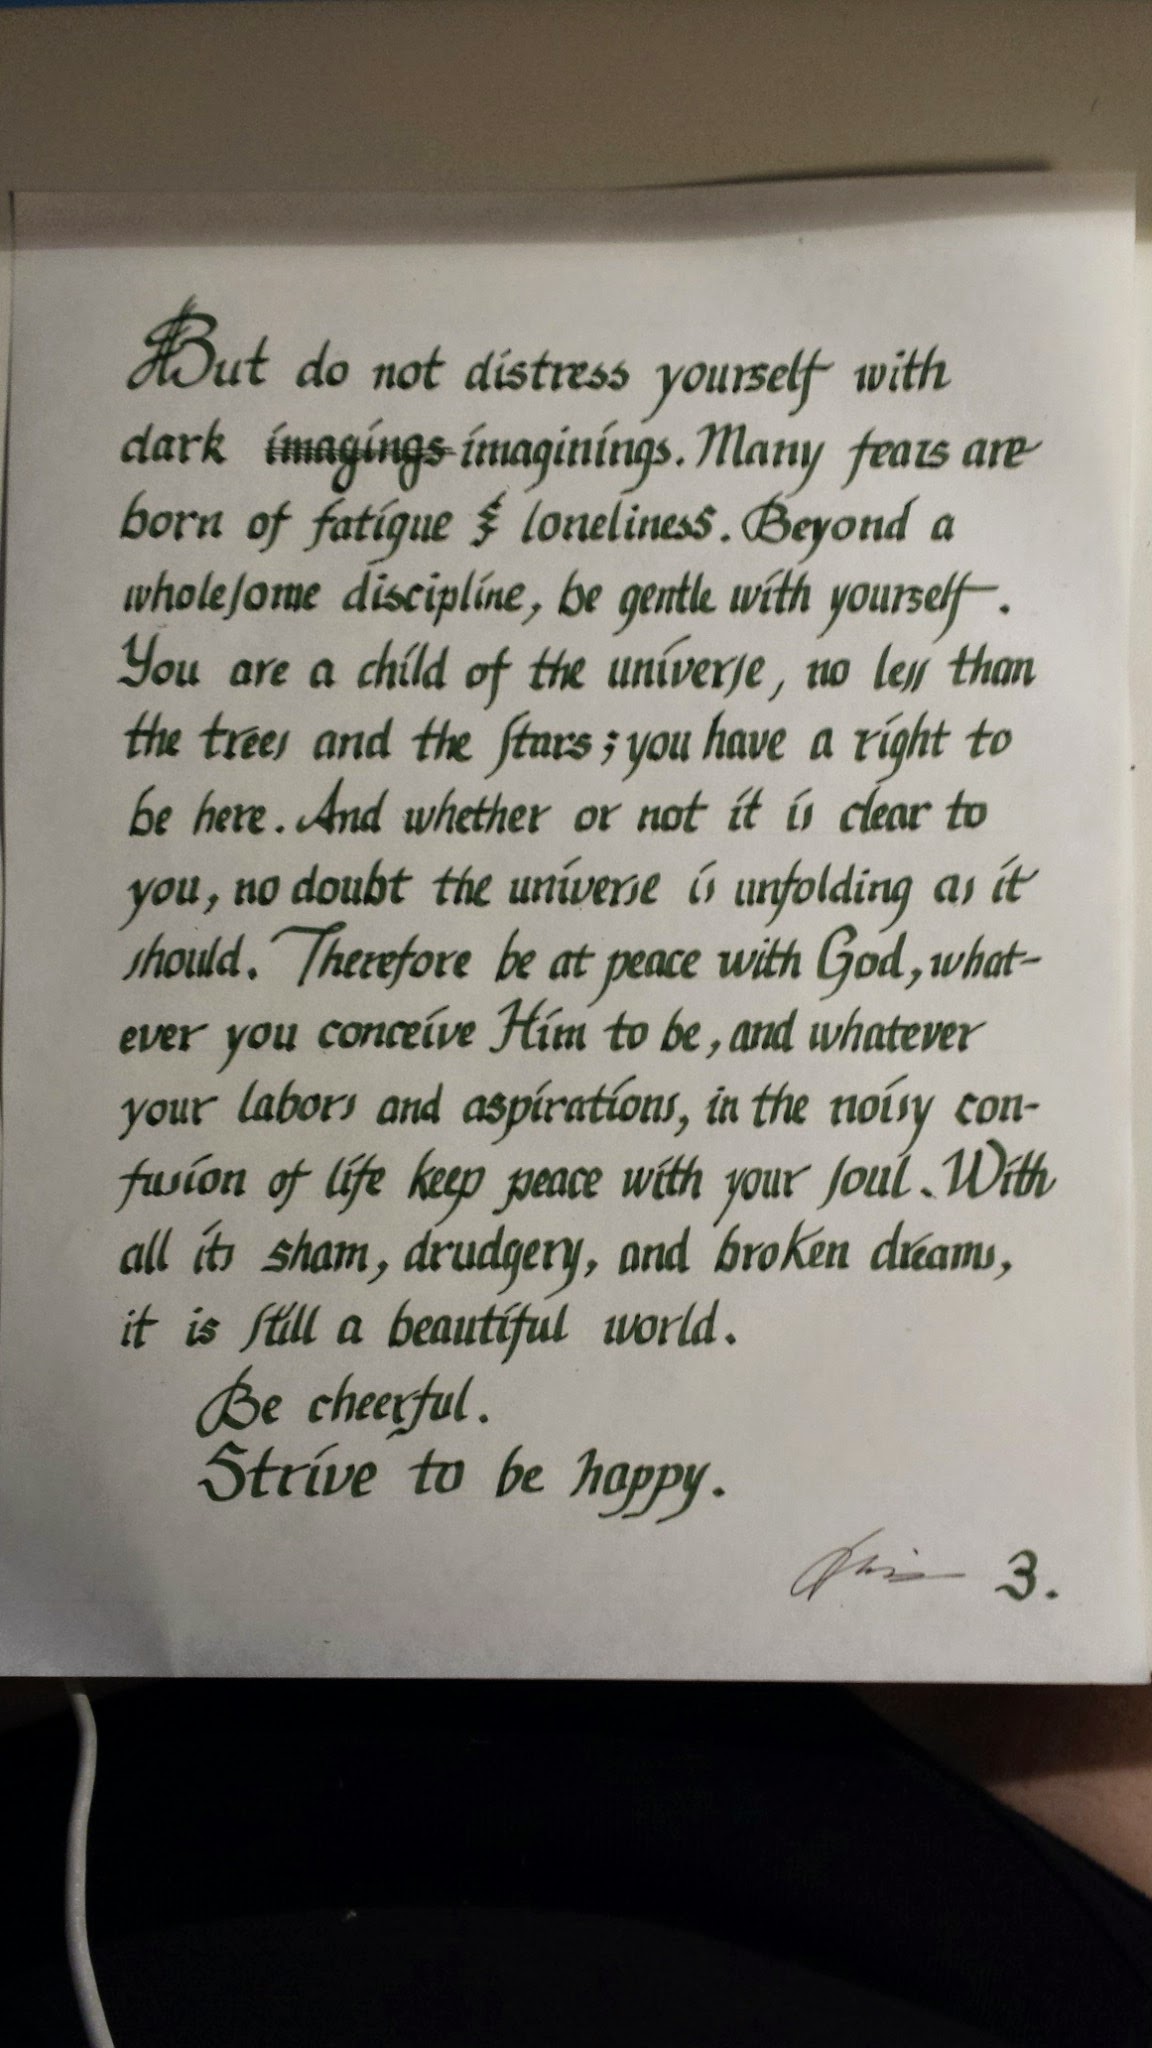 But do not distress yourself with
dark imagings imaginings. Many fears are
born of fatigue & loneliness. Beyond a
wholesome discipline, be gentle with yourself.
You are a child of the universe, no less than
the trees and the stars; you have a right to
be here. And whether or not it is clear to
you, no doubt the universe is unfolding as it
should. Therefore be at peace with God, what-
ever you conceive Him to be, and whatever
your labors and aspirations, in the noisy con-
fusion of life keep peace with your soul. With
all its sham, drudgery, and broken dreams,
it is still a beautiful world.
Be cheerful.
Strive to be happy.
3.